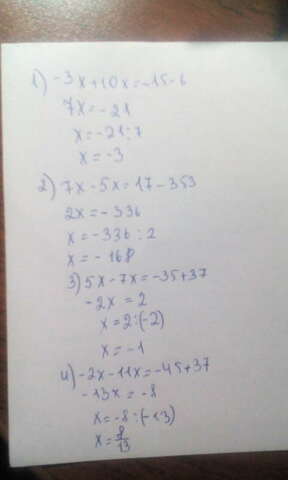 1) -3x+10x=-15-6
7x=-21
x=-21:7
x=-3
2) 7x-5x=17-353
2x=-336
x=-336:2
x=-168
3) 5x-7x=-35+37
-2x=2
x=2:(-2)
x=-1
4) -2x-11x=-45+37
-13x=-8
x=-8:(-13)
x=8/13